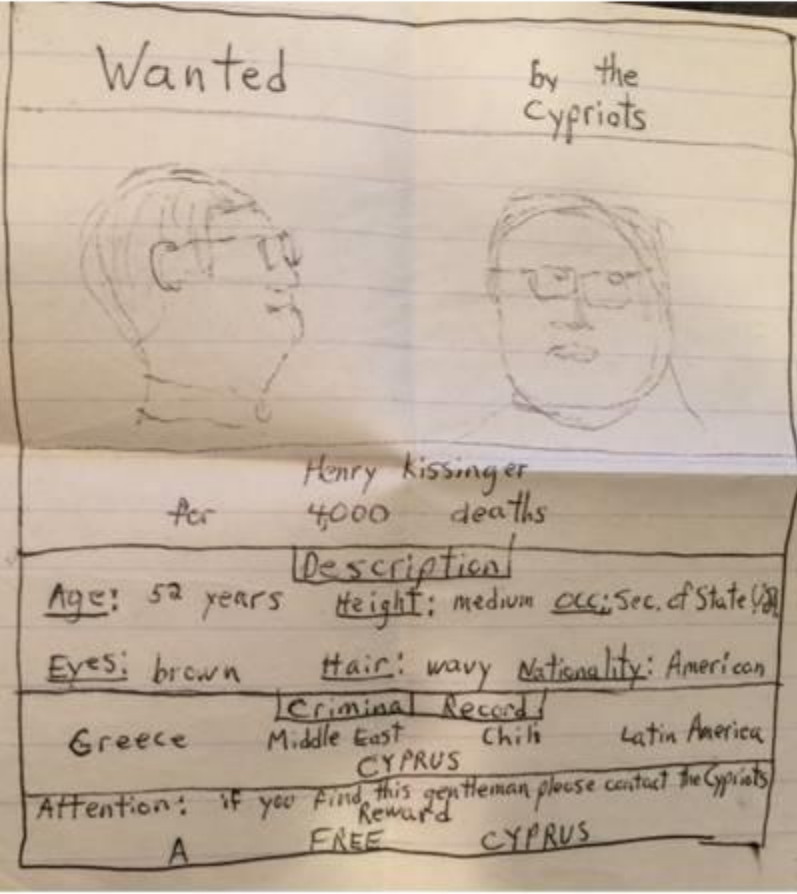 Wanted
by the
Cypriots
Henry Kissinger
for 4,000 deaths
Description
Age: 52 years Height: medium Occ: Sec. of State
Eyes: brown Hair: wavy Nationality: American
Criminal Record
Greece Middle East Chili Latin America
CYPRUS
Attention: if you find this gentleman please contact the Cypriots
Reward
A FREE CYPRUS